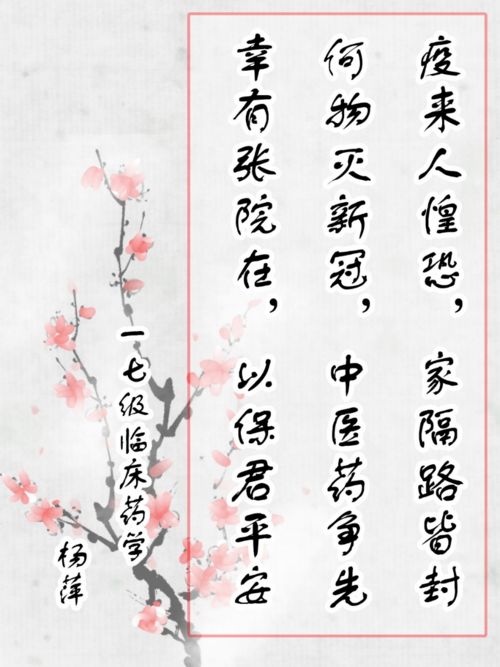 疫来人惶恐，家隔路皆封
何物灭新冠，中医药争先
幸有张院在，以保君平安
一七级临床药学
杨萍